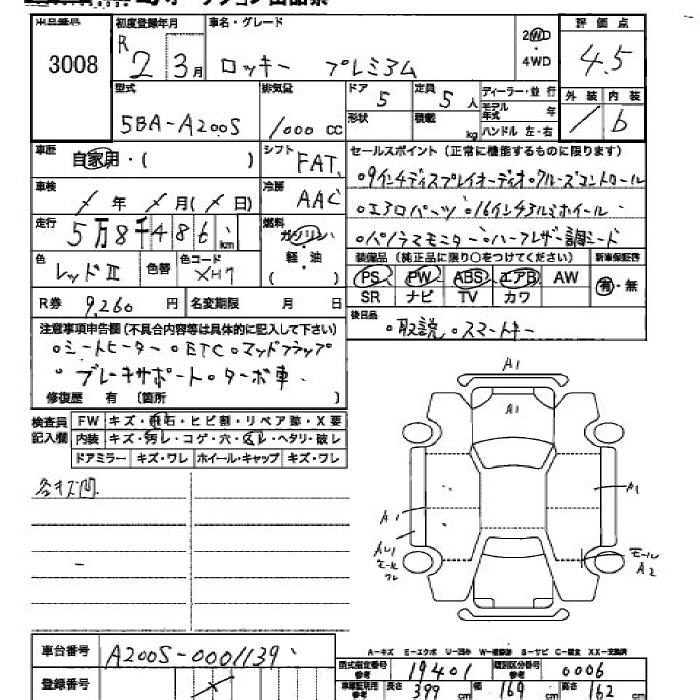 3008
初度登録年月
R 2 3月
車名・グレード
ロッキー プレミアム
2WD
・
4WD
評価点
4.5
外装 内装
b
型式
5BA-A200S
排気量
1000 cc
ドア
5
定員
5人
形状
積載
kg
ディーラー・並行
モデル年式 年
ハンドル 左・右
車歴
自家用・( )
シフト
FAT
冷房
AAC
車検
年 月( 日)
走行
5万8千486 km
燃料
ガソリン
軽・油
( )
色
レッドⅡ
色替
色コード
R券 9,260 円
名変期限 月 日
セールスポイント(正常に機能するものに限ります)
○9インチディスプレイオーディオ○クルーズコントロール
○エアロパーツ ○16インチアルミホイール
○パノラマモニター ○ハーフレザー調シート
装備品(純正品に限り○をつけてください)
新車保証書
PS PW ABS エアB AW
SR ナビ TV カワ
有・無
後日品
○取説 ○スマートキー
注意事項申告欄(不具合内容等は具体的に記入して下さい)
○シートヒーター ○ETC○マッドフラップ
○ブレーキサポート○ターボ車
修復歴 有(箇所 )
検査員
記入欄
FW キズ・飛石・ヒビ割・リペア跡・X要
内装 キズ・汚レ・コゲ・穴・スレ・ヘタリ・破レ
ドアミラー キズ・ワレ ホイール・キャップ キズ・ワレ
各キズ凹
A1
A1
A1
A1
モール
A2
車台番号
A200S-0001139
登録番号
A-キズ E-エクボ U-凹み W-補修跡 S-サビ C-腐食 XX-交換済
型式指定番号
参考
19401
類別区分番号
参考
0006
長さ 399 cm
幅 169 cm
高さ 162 cm